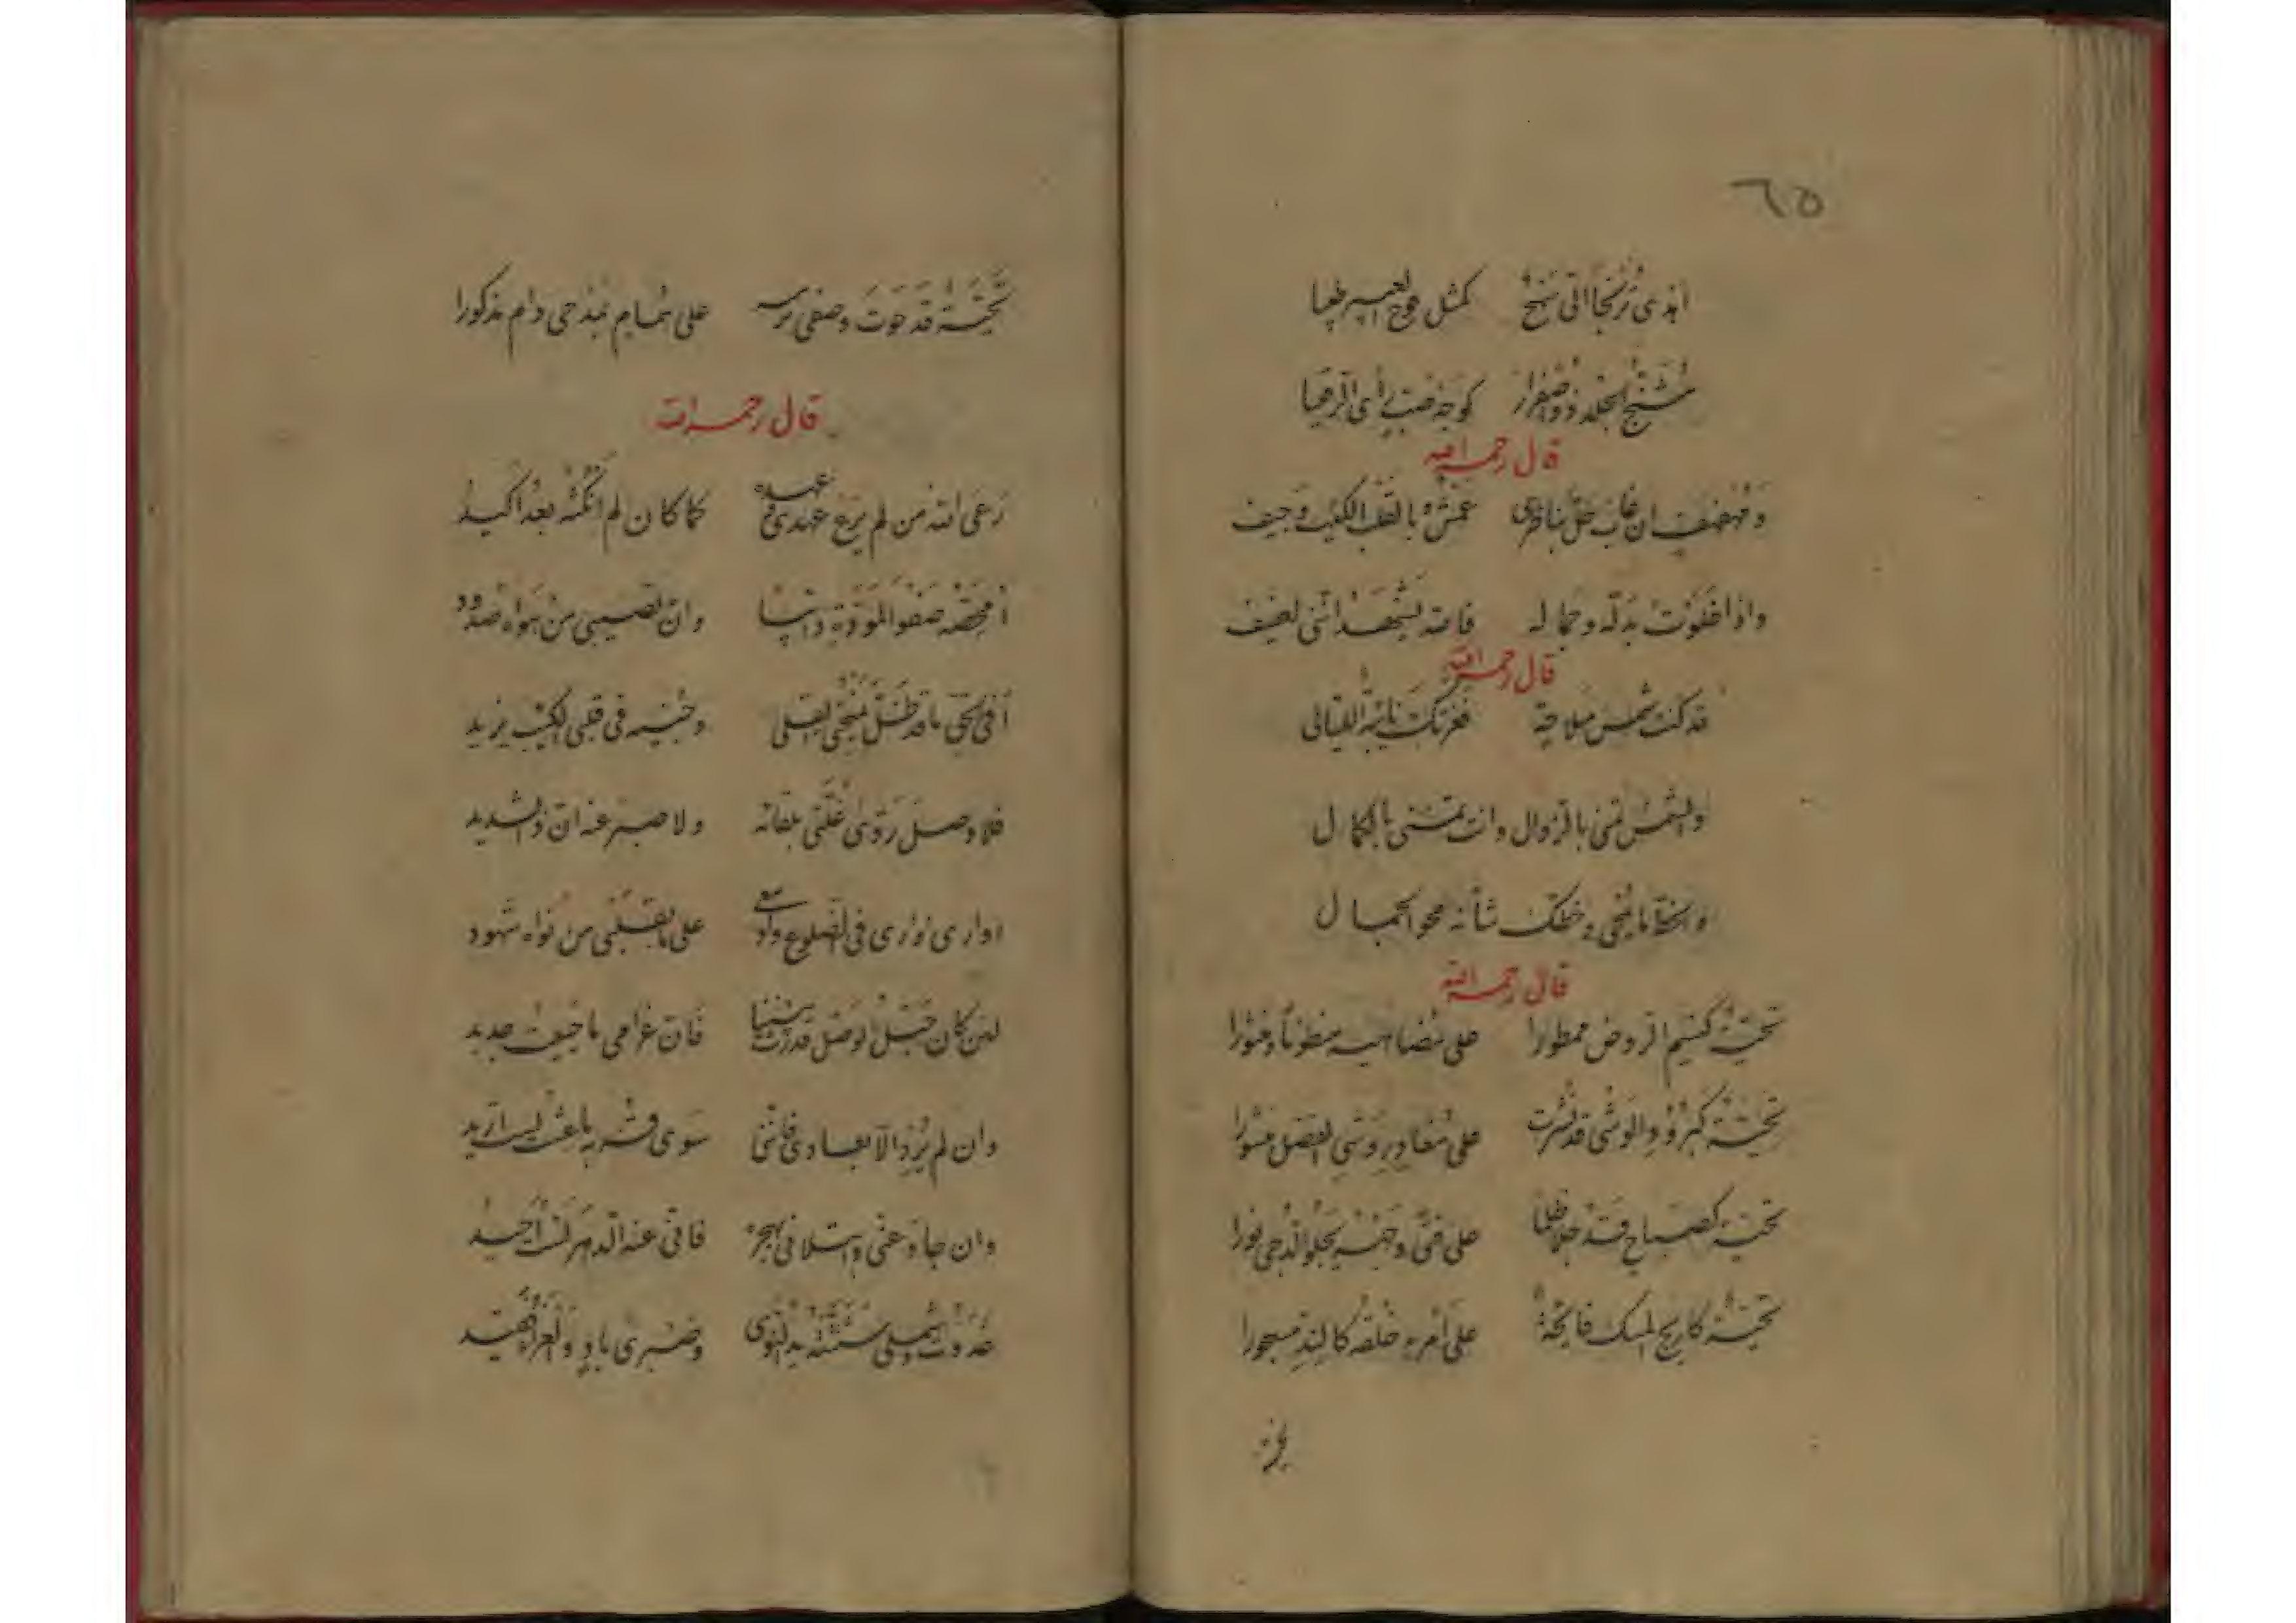 ٦٥
اهدى ترنجا الى شيخ كمثل
مشنج الجلد ذو اصفرار كوجه ضب رأى الرقيبا
قال رحمه الله
ومهفهف ان غاب عن ناظرى بالقلب الكئيب وجيف
واذا خلوت بدله وجماله فالله يشهد اننى لعفيف
قال رحمه الله
قد كنت شمس ملاحة فغزتك نائبة الليالى
والشمس تمنى بالزوال وانت تمنى بالكمال
والخط ما يمحى وخطك شأنه محو الجمال
قال رحمه الله
تحية كنسيم الروض ممطورا على منظوما ومنثورا
تحية كبرود الوشى قد نشرت على وشى الفضل منشورا
تحية كصباح قد جلا ظلما على فتى وجهه يجلو الدجى نورا
تحية كاريج المسك فايحة على امرء خلقه كالند مسجورا
تحية قد حوت وصفى على بمدحى دام مذكورا
قال رحمه الله
رعى الله من لم يرع عهدى وعهده كما كان لم انكثه بعد اكيد
أمحضه صفو المودة دائبا وان نصيبى من هواه صدود
أفى الحق ما قد ظل يمنحنى القلى وحبيه فى قلبى الكئيب يزيد
فلا وصل روى غلتى بلقائه ولا صبر عنه ان ذا لشديد
اوارى اوارى فى الضلوع وادمعى على ما بقلبى من نواه شهود
لئن كان حبل الوصل قد رث بيننا فان غرامى ما حييت جديد
وان لم يرد الا بعادى فاننى سوى قربه ما عشت لست اريد
وان حاد عنى وابتلانى بهجره فانى عنه الدهر لست احيد
غدوت وشملى شتته يد النوى وضرى باد والعزاء فقيد